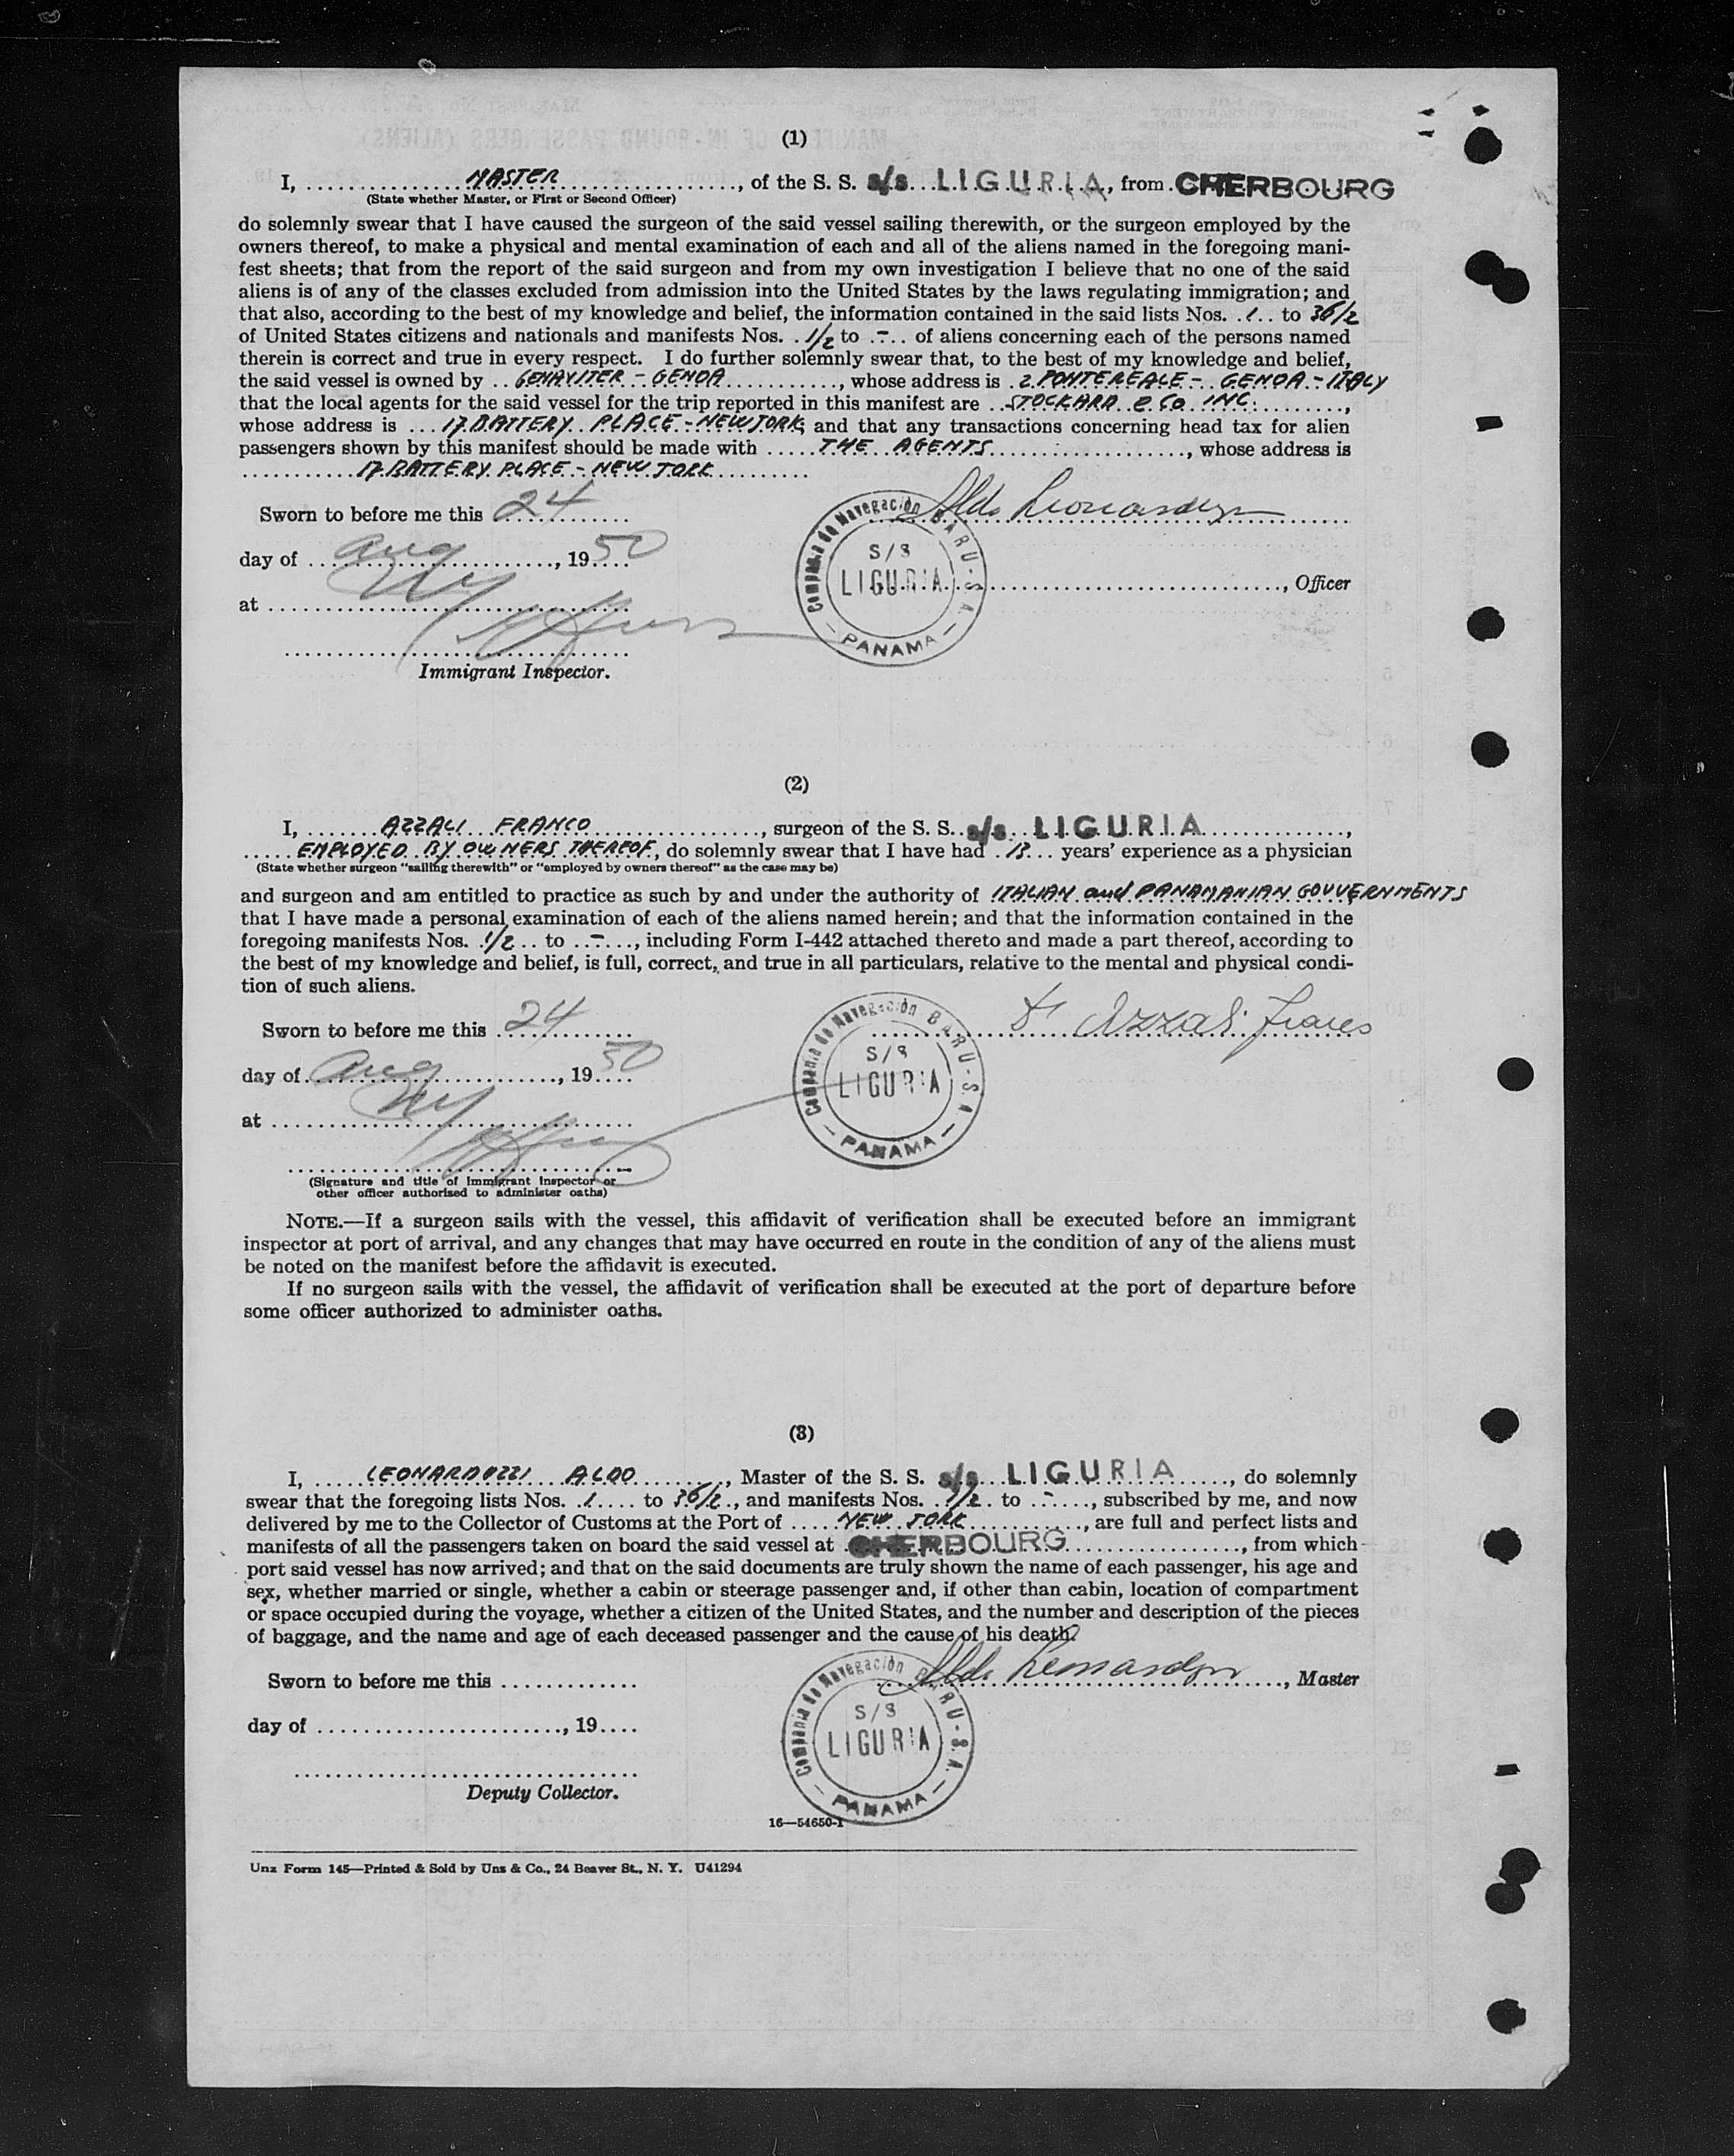 (1)
I, MASTER, of the S. S. s/s LIGURIA, from CHERBOURG
(State whether Master, or First or Second Officer)
do solemnly swear that I have caused the surgeon of the said vessel sailing therewith, or the surgeon employed by the
owners thereof, to make a physical and mental examination of each and all of the aliens named in the foregoing mani-
fest sheets; that from the report of the said surgeon and from my own investigation I believe that no one of the said
aliens is of any of the classes excluded from admission into the United States by the laws regulating immigration; and
that also, according to the best of my knowledge and belief, the information contained in the said lists Nos. 1 to 36/2
of United States citizens and nationals and manifests Nos. 1/2 to - of aliens concerning each of the persons named
therein is correct and true in every respect. I do further solemnly swear that, to the best of my knowledge and belief,
the said vessel is owned by - GENOA, whose address is 2. PONTEREALE - GENOA - ITALY
that the local agents for the said vessel for the trip reported in this manifest are STOCKARD e Co INC.,
whose address is 17. BATTERY PLACE - NEW JORK; and that any transactions concerning head tax for alien
passengers shown by this manifest should be made with THE AGENTS, whose address is
17. BATTERY PLACE - NEW JORK
Sworn to before me this 24
Aldo Leonarduzzi
day of Aug, 1950
Compania de Navegación BARU - S. A.
S/S
LIGURIA
PANAMA
, Officer
at NY
Immigrant Inspector.
(2)
I, AZZALI FRANCO, surgeon of the S. S. s/s LIGURIA,
EMPLOYED BY OWNERS THEREOF, do solemnly swear that I have had 13 years' experience as a physician
(State whether surgeon "sailing therewith" or "employed by owners thereof" as the case may be)
and surgeon and am entitled to practice as such by and under the authority of ITALIAN and PANAMANIAN GOUVERNMENTS
that I have made a personal examination of each of the aliens named herein; and that the information contained in the
foregoing manifests Nos. 1/2 to -, including Form I-442 attached thereto and made a part thereof, according to
the best of my knowledge and belief, is full, correct, and true in all particulars, relative to the mental and physical condi-
tion of such aliens.
Sworn to before me this 24
Dr Azzali Franco
day of Aug, 1950
Compania de Navegación BARU - S. A.
S/S
LIGURIA
PANAMA
at NY
(Signature and title of Immigrant Inspector or
other officer authorized to administer oaths)
NOTE.—If a surgeon sails with the vessel, this affidavit of verification shall be executed before an immigrant
inspector at port of arrival, and any changes that may have occurred en route in the condition of any of the aliens must
be noted on the manifest before the affidavit is executed.
If no surgeon sails with the vessel, the affidavit of verification shall be executed at the port of departure before
some officer authorized to administer oaths.
(3)
I, LEONARDUZZI ALDO, Master of the S. S. s/s LIGURIA, do solemnly
swear that the foregoing lists Nos. 1 to 36/2, and manifests Nos. 1/2 to -, subscribed by me, and now
delivered by me to the Collector of Customs at the Port of NEW JORK, are full and perfect lists and
manifests of all the passengers taken on board the said vessel at CHERBOURG, from which
port said vessel has now arrived; and that on the said documents are truly shown the name of each passenger, his age and
sex, whether married or single, whether a cabin or steerage passenger and, if other than cabin, location of compartment
or space occupied during the voyage, whether a citizen of the United States, and the number and description of the pieces
of baggage, and the name and age of each deceased passenger and the cause of his death.
Sworn to before me this
Aldo Leonarduzzi, Master
day of , 19
Compania de Navegación BARU - S. A.
S/S
LIGURIA
PANAMA
Deputy Collector.
16—54650-1
Unz Form 145—Printed & Sold by Unz & Co., 24 Beaver St., N. Y. U41294